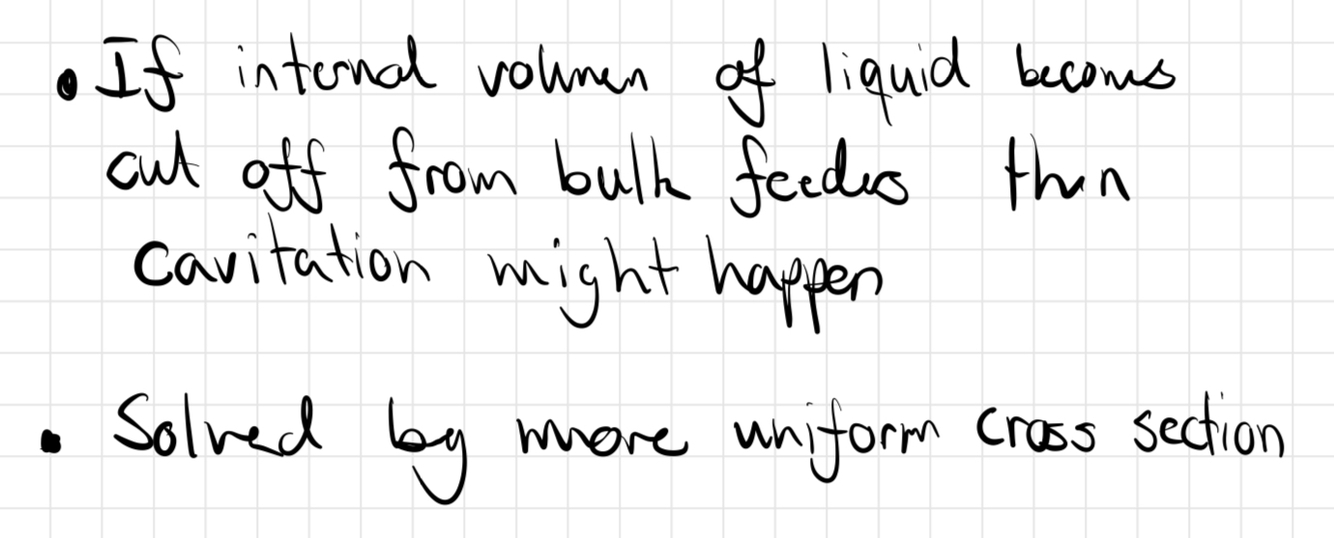 • If internal volumen of liquid becoms
cut off from bulk feeders then
cavitation might happen
• Solved by more uniform cross section